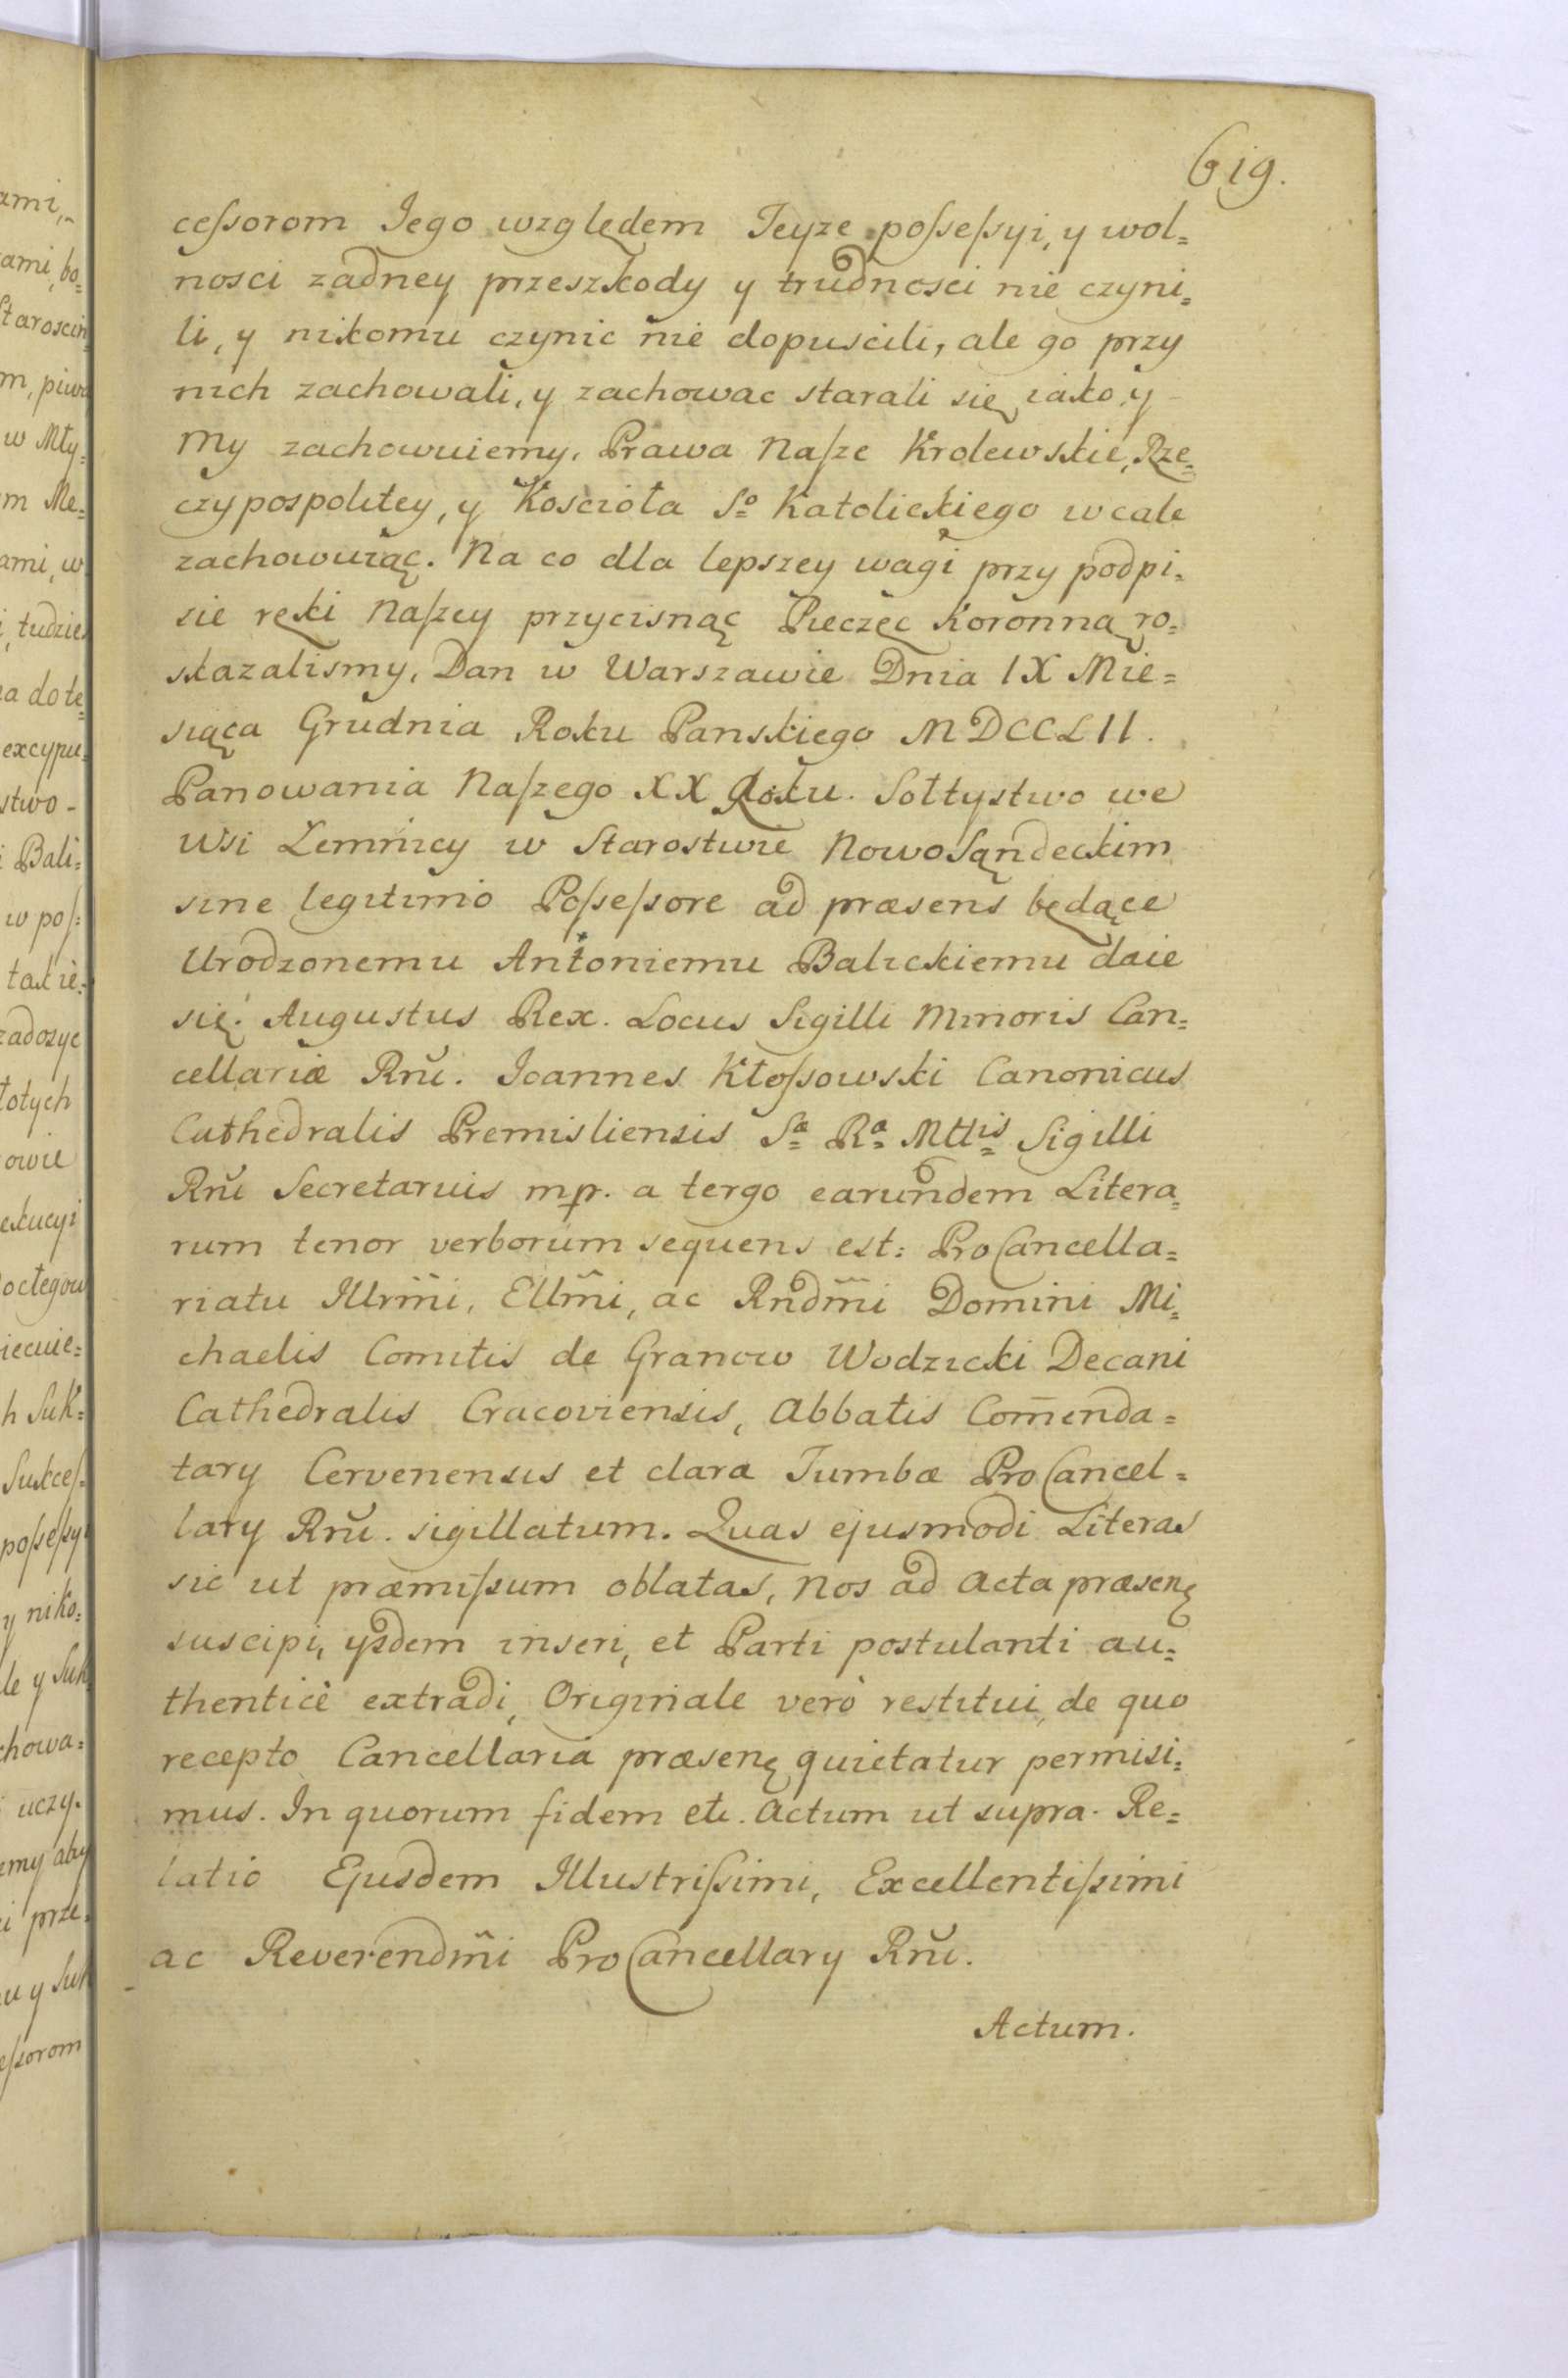 619.
ceſsorom Jego względem Teyze poſseſsyi, y wol=
nosci zadney przeszkody y trudnosci nie czyni=
li, y nikomu czynic nie dopuscili, ale go przy
nich zachowali, y zachowac starali się iako y
My zachowuiemy, Prawa Naſze Krolewskie, Rze=
czypospolitey, y Kosciola So Katolickiego wcale
zachowuiąc. Na co dla lepszey wagi przy podpi=
sie ręki Naſzey przycisnąc Pieczęc Koronną ro=
skazalismy, Dan w Warszawie Dnia IX Mie=
siąca Grudnia Roku Panskiego MDCCLII.
Panowania Naſzego XX Roku. Sołtystwo we
Wsi Łemnicy w Starostwie NowoSąndeckim
sine legitimo Poſseſsore ad præsens będące
Urodzonemu Antoniemu Balickiemu daie
się. Augustus Rex. Locus Sigilli Minoris Can=
cellariæ Rnũ. Joannes Kłoſsowski Canonicus
Cathedralis Premisliensis Sa Ra Mttis Sigilli
Rnũ Secretarius mp. a tergo earundem Litera=
rum tenor verborum sequens est: ProCancella=
riatu Illrm̃i, Ellm̃i, ac Rndm̃i Domini Mi=
chaelis Comitis de Granow Wodzicki Decani
Cathedralis Cracoviensis, Abbatis Com̄enda=
tary Cervenensis et clara Tumbæ ProCancel=
lary Rnũ. sigillatum. Quas ejusmodi Literas
sic ut præmiſsum oblatas, Nos ad Acta præsenę
suscipi, ysdem inseri, et Parti postulanti au=
thenticè extradi, Originale verò restitui, de quo
recepto Cancellaria præsenę quietatur permisi=
mus. In quorum fidem etc. Actum ut supra. Re=
latio Ejusdem Illustriſsimi, Excellentiſsimi
ac Reverendm̃i ProCancellary Rnũ.
Actum.